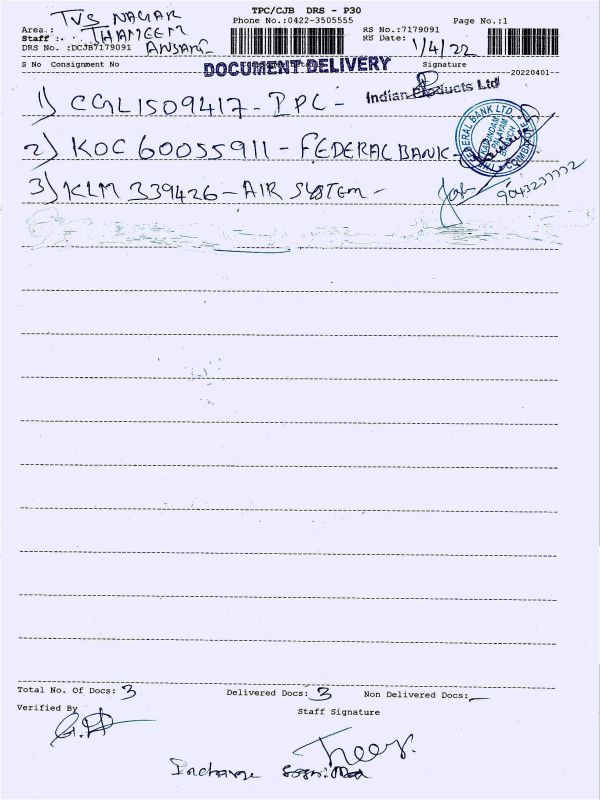 TPC/CJB DRS - P30
Phone No.:0422-3505555 Page No.:1
Area.: TVS NAGAR
Staff : THAMEEM ANSARI
DRS No. :DCJB7179091
RS No.:7179091
RS Date: 1/4/22
S No Consignment No Signature
DOCUMENT DELIVERY
20220401
1) CGL1509417 - IPC - Indian Products Ltd
2) KOC60055911 - FEDERAL BANK -
THE FEDERAL BANK LTD. COIMBATORE BRANCH
3) KLM 339426 - AIR SYSTEM -
Total No. Of Docs: 3 Delivered Docs: 3 Non Delivered Docs: -
Verified By Staff Signature
Incharge